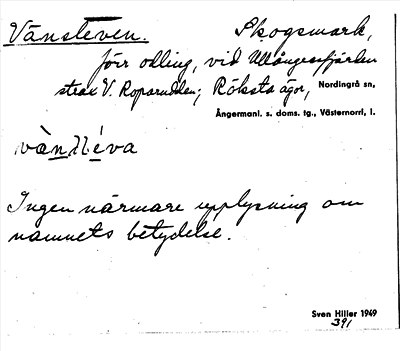 Vänsteven. Skogsmark,
förr odling, vid Ullångersfjärden
strax V. Roparudden; Röksta ägor, Nordingrå sn,
Ångermanl. s. doms. tg., Västernorrl. l.
Ingen närmare upplysning om
namnets betydelse.
Sven Hiller 1949
391